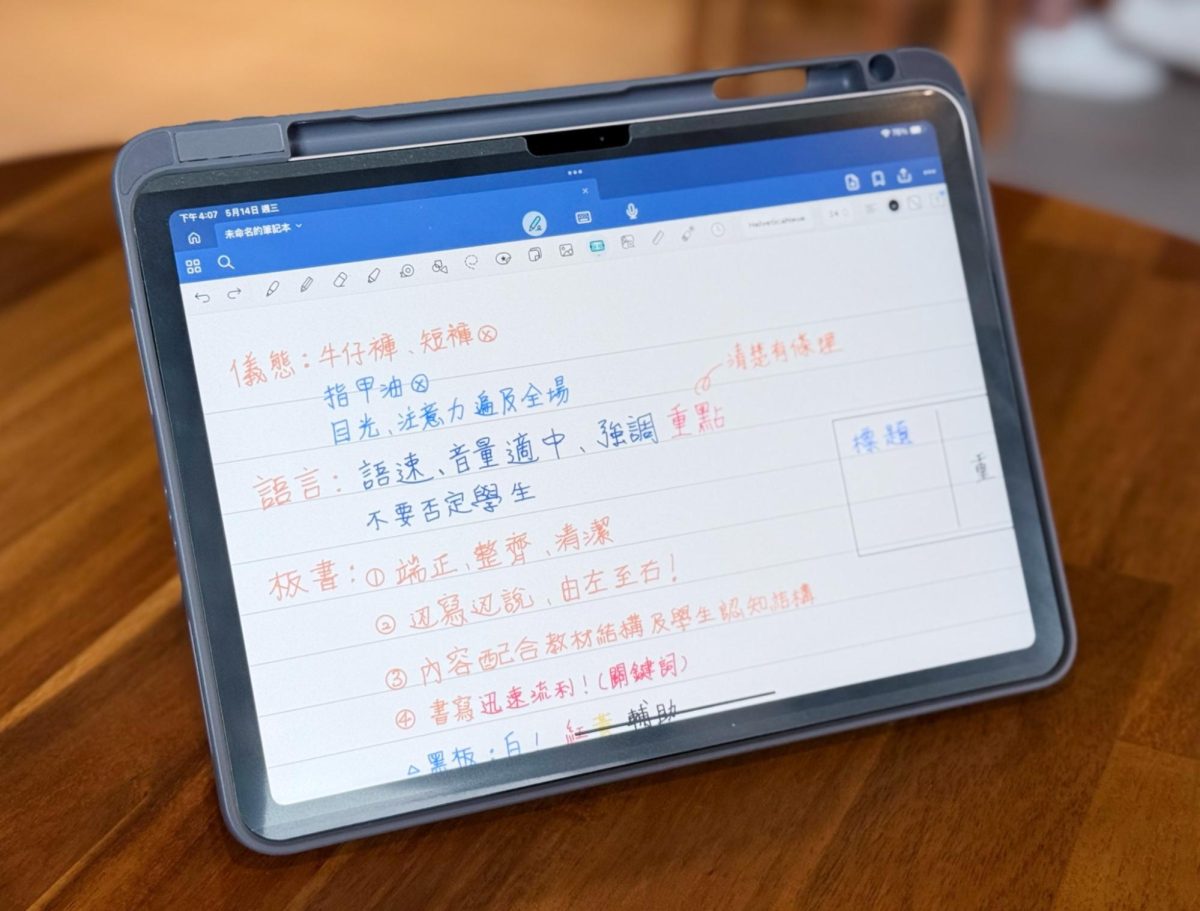 下午4:07 5月14日 週三
76%
未命名的筆記本
HelveticaNeue 14
儀態：牛仔褲、短褲ⓧ
指甲油ⓧ
目光、注意力遍及全場
清楚有條理
語言：語速、音量適中、強調重點
不要否定學生
標題
重
板書：①端正、整齊、清潔
②边寫边說、由左至右！
③內容配合教材結構及學生認知結構
④書寫迅速流利！(關鍵詞)
△黑板：白！紅黃輔助